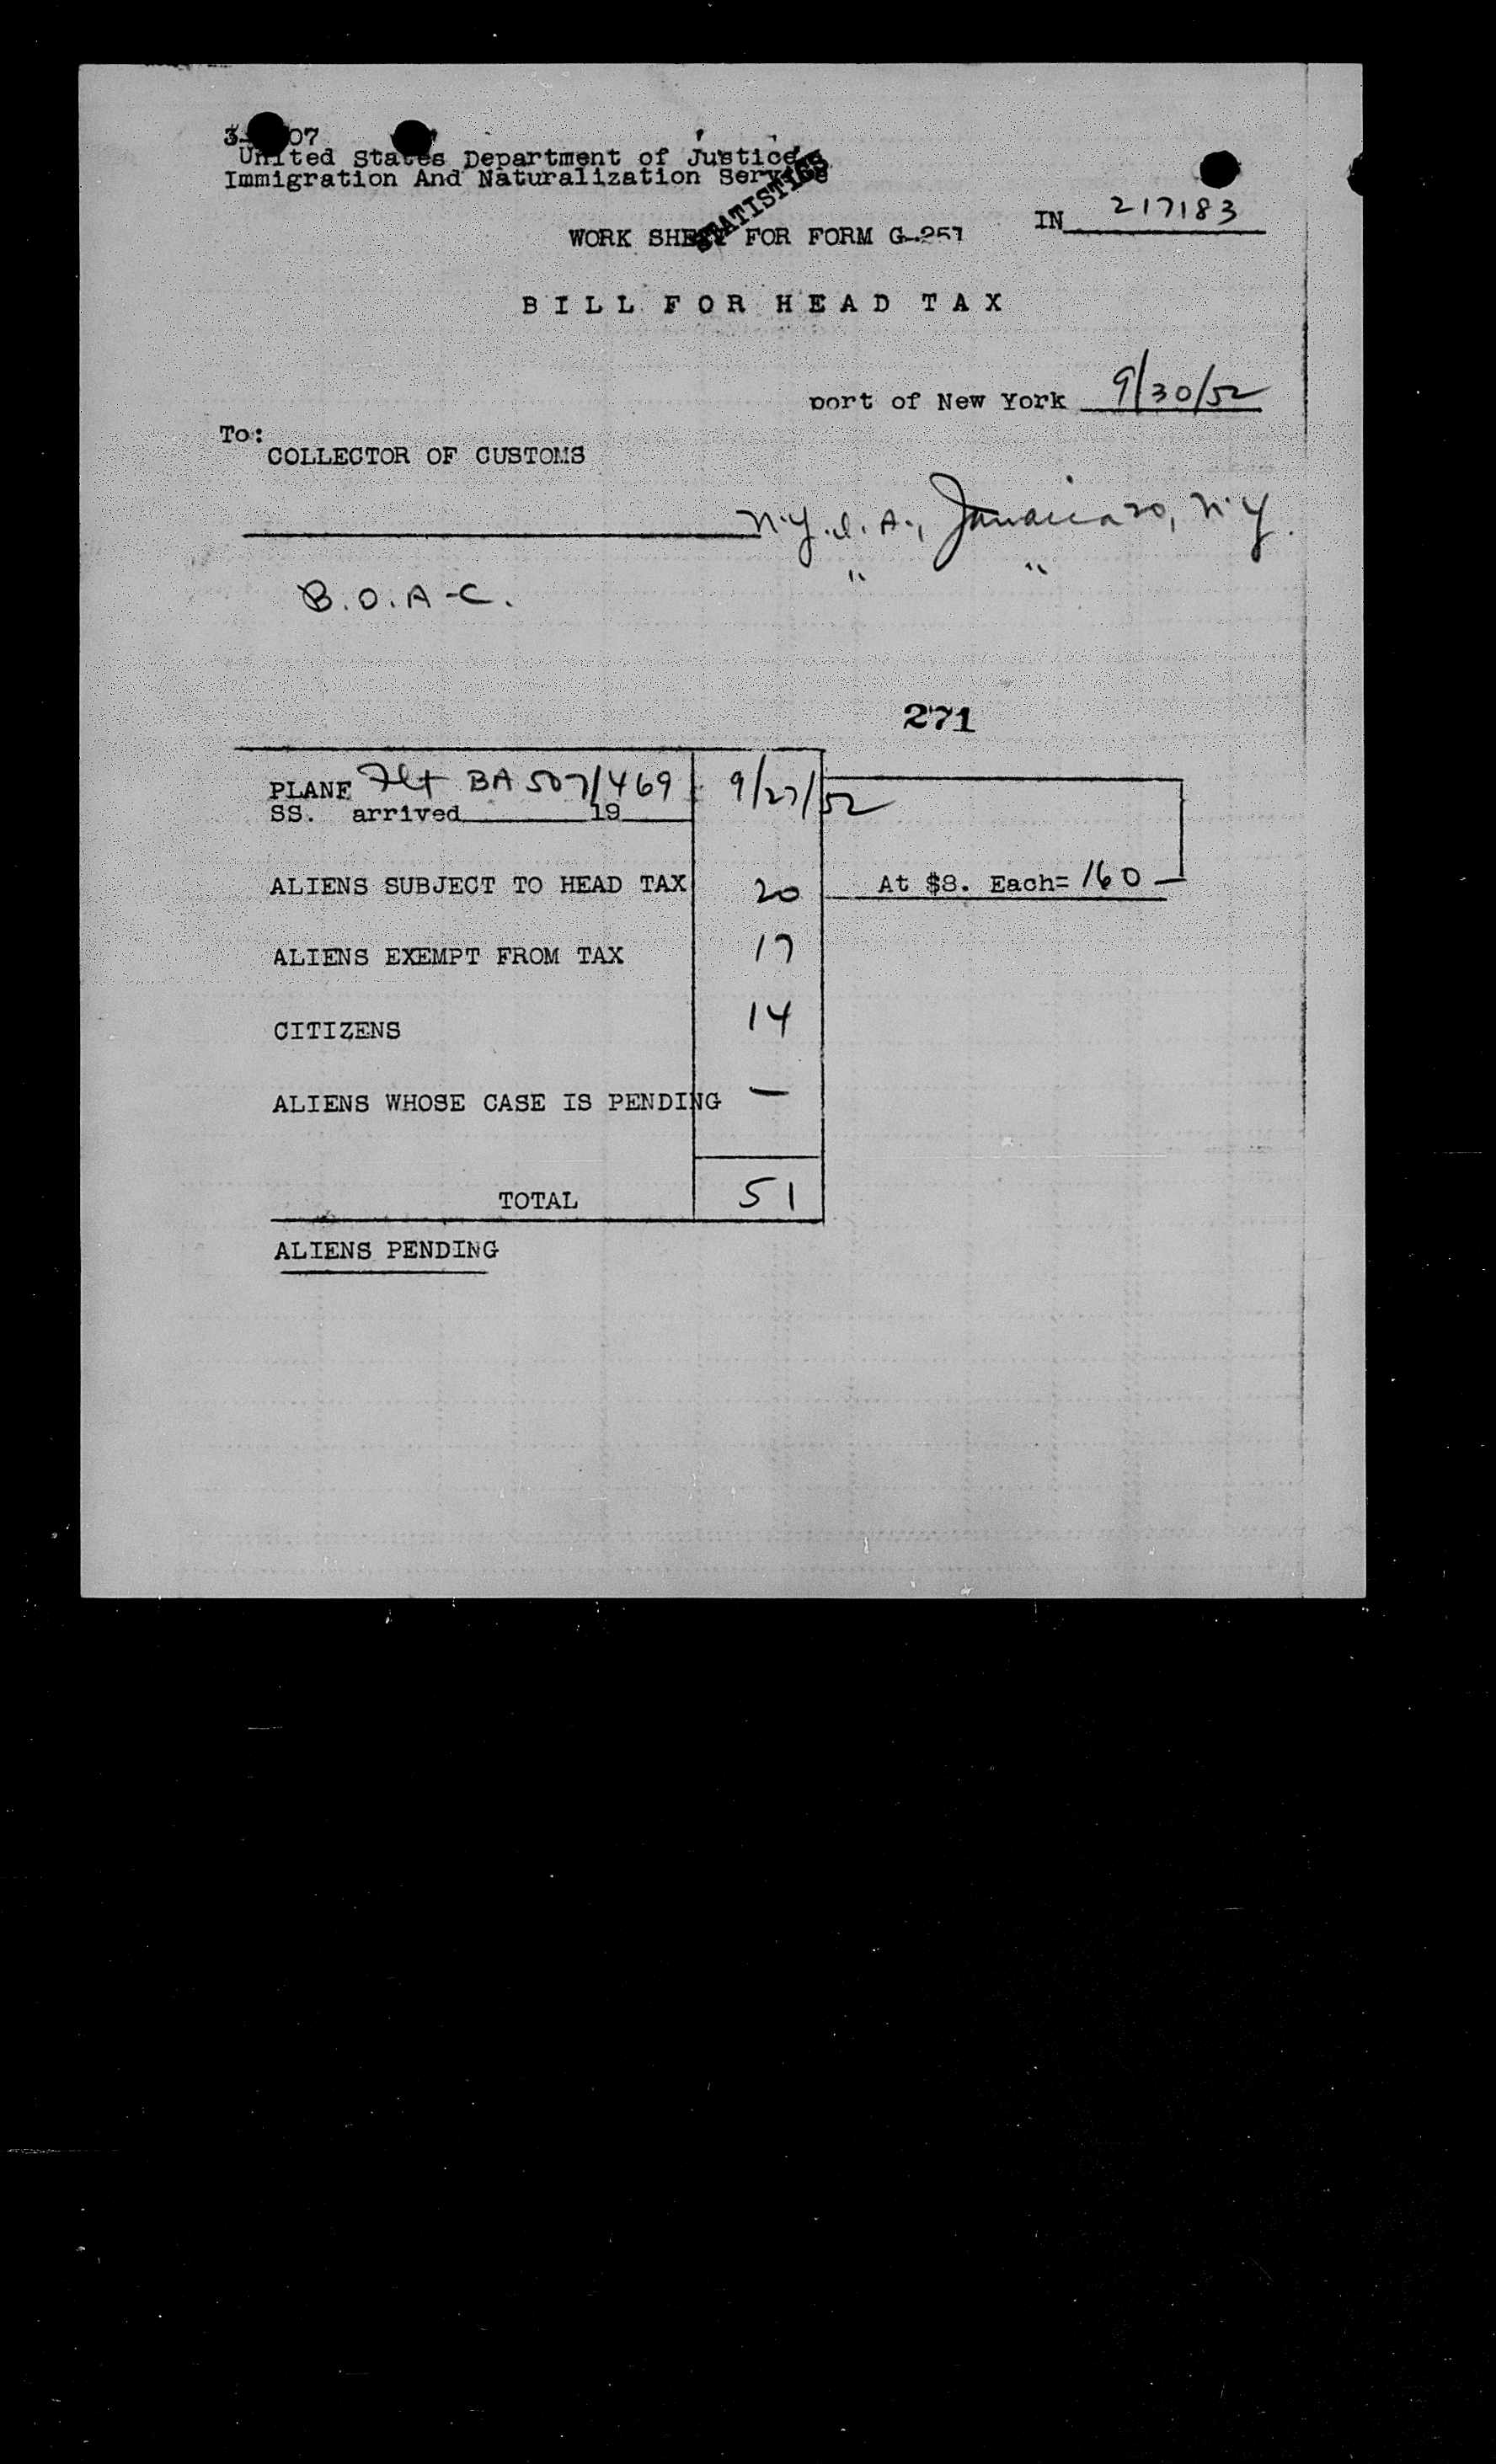 3- 07
United States Department of Justice
Immigration And Naturalization Service
STATISTICS
IN 217183
WORK SHEET FOR FORM G-257
BILL FOR HEAD TAX
port of New York 9/30/52
To:
COLLECTOR OF CUSTOMS
N.Y.I.A., Jamaica 30, N.Y.
B.O.A.C. " "
271
PLANE Flt BA 507/469 9/27/52
SS. arrived 19
ALIENS SUBJECT TO HEAD TAX 20 At $8. Each= 160
ALIENS EXEMPT FROM TAX 17
CITIZENS 14
ALIENS WHOSE CASE IS PENDING —
TOTAL 51
ALIENS PENDING